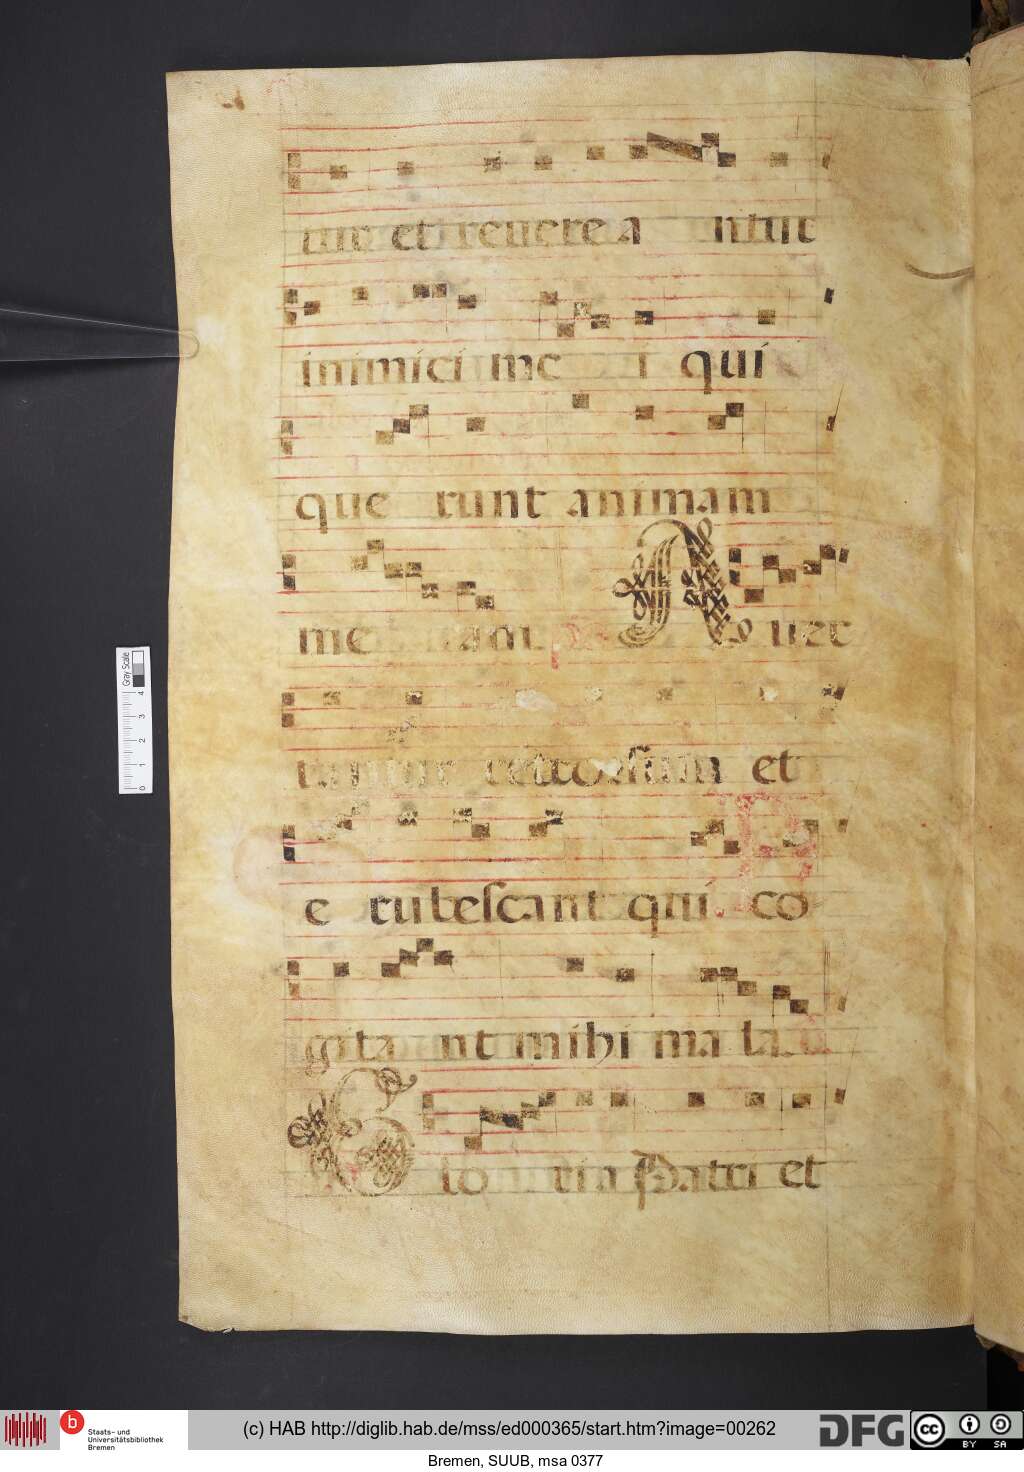 tur et reuerea ntur
inimici me i qui
que runt animam
me am. Auer
tantur retrorsum et
e rubescant qui co
gita nt mihi mala.
Glo ria Patri et
Gray Scale
4
3
2
1
0
b
Staats- und
Universitätsbibliothek
Bremen
(c) HAB http://diglib.hab.de/mss/ed000365/start.htm?image=00262
DFG
cc
BY SA
Bremen, SUUB, msa 0377